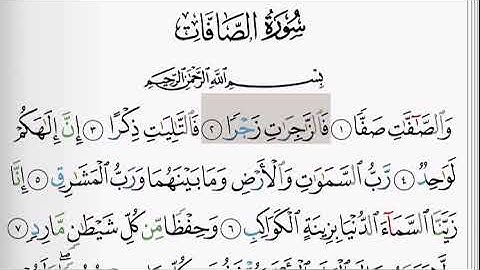 سُورَةُ الصَّافَّاتِ
بِسْمِ اللَّهِ الرَّحْمَٰنِ الرَّحِيمِ
وَٱلصَّٰٓفَّٰتِ صَفًّا ١ فَٱلزَّٰجِرَٰتِ زَجْرًا ٢ فَٱلتَّٰلِيَٰتِ ذِكْرًا ٣ إِنَّ إِلَٰهَكُمْ
لَوَٰحِدٌ ٤ رَّبُّ ٱلسَّمَٰوَٰتِ وَٱلْأَرْضِ وَمَا بَيْنَهُمَا وَرَبُّ ٱلْمَشَٰرِقِ ٥ إِنَّا
زَيَّنَّا ٱلسَّمَآءَ ٱلدُّنْيَا بِزِينَةٍ ٱلْكَوَاكِبِ ٦ وَحِفْظًا مِّن كُلِّ شَيْطَٰنٍ مَّارِدٍ ٧